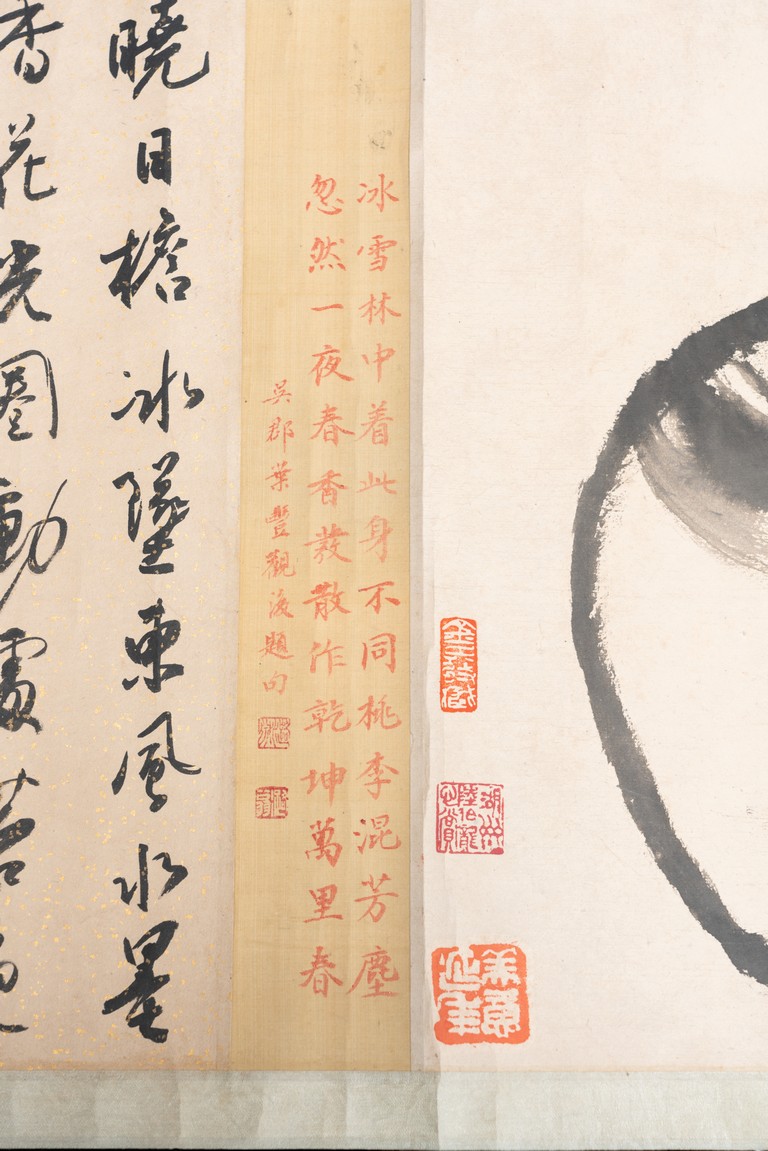 冰雪林中着此身不同桃李混芳塵
忽然一夜春香發散作乾坤萬里春
吳郡葉豐觀後題句
曉日檐冰墜東風水墨
香花光圈動處